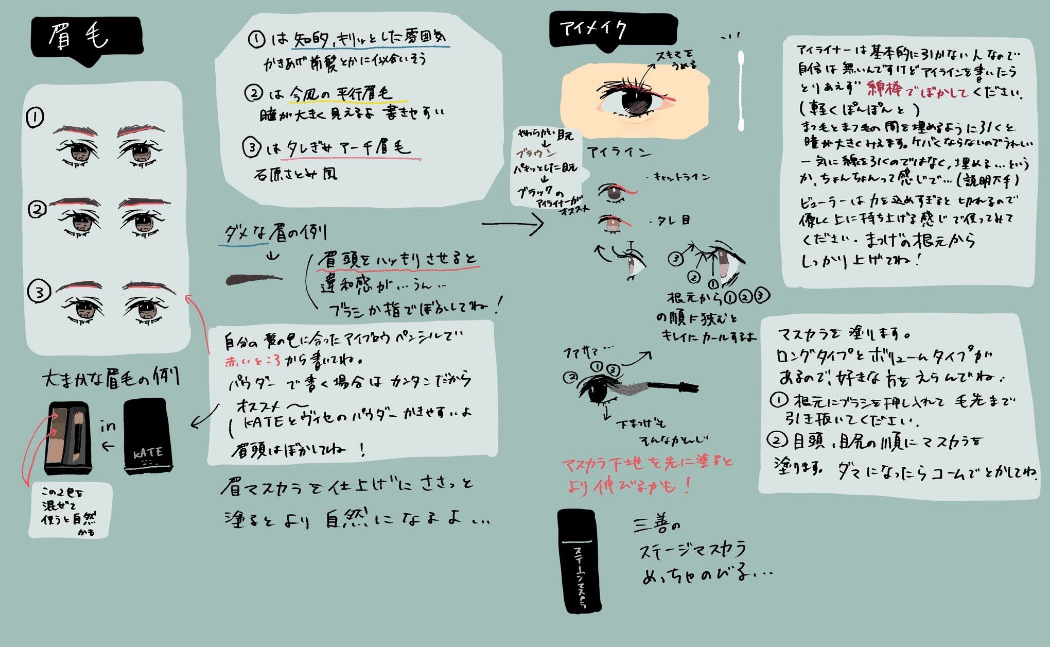 眉毛
①
②
③
大まかな眉毛の例
in
KATE
この2色を
混ぜて
使うと自然
かも
①は 知的,キリッとした雰囲気
かきあげ前髪とかに似合いそう
②は 今風の平行眉毛
瞳が大きく見えるよ 書きやすい
③は タレぎみアーチ眉毛
石原さとみ風
ダメな眉の例
眉頭をハッキリさせると
違和感が…うん…
ブラシか指でぼかしてね!
自分の髪の色に合ったアイブロウペンシルで
赤いところから書いてね。
パウダーで書く場合はカンタンだから
オススメ〜
KATEとヴィセのパウダーかきやすいよ
眉頭はぼかしてね!
眉マスカラを仕上げにささっと
塗るとより自然になるよ…
アイメイク
スキマを
うめる
やわらかい目元
ブラウン
パキッとした目元
ブラックの
アイライナーが
オススメ
アイライン
・キャットライン
・タレ目
③
②
①
根元から①②③
の順に挟むと
キレイにカールするよ
②
①
③
下まつげも
そんなかんじ
マスカラ下地を先に塗ると
より伸びるかも!
ステージマスカラ
三善の
ステージマスカラ
めっちゃのびる…
アイライナーは基本的に引かない人なので
自信は無いんですけどアイラインを書いたら
とりあえず 綿棒でぼかしてください.
(軽くぽんぽんと)
まつ毛とまつ毛の間を埋めるように引くと
瞳が大きくみえます。ケバくならないのでうれしい
一気に線を引くのではなく,埋める…という
か,ちょんちょんって感じで…(説明下手)
ビューラーは力を込めすぎると切れるので
優しく上に持ち上げる感じで使ってみて
ください.まつげの根元から
しっかり上げてね!
マスカラを塗ります。
ロングタイプとボリュームタイプが
あるので,好きな方をえらんでね.
①根元にブラシを押し入れて 毛先まで
引き抜いてください.
②目頭,目尻の順にマスカラを
塗ります。ダマになったらコームでとかしてね.